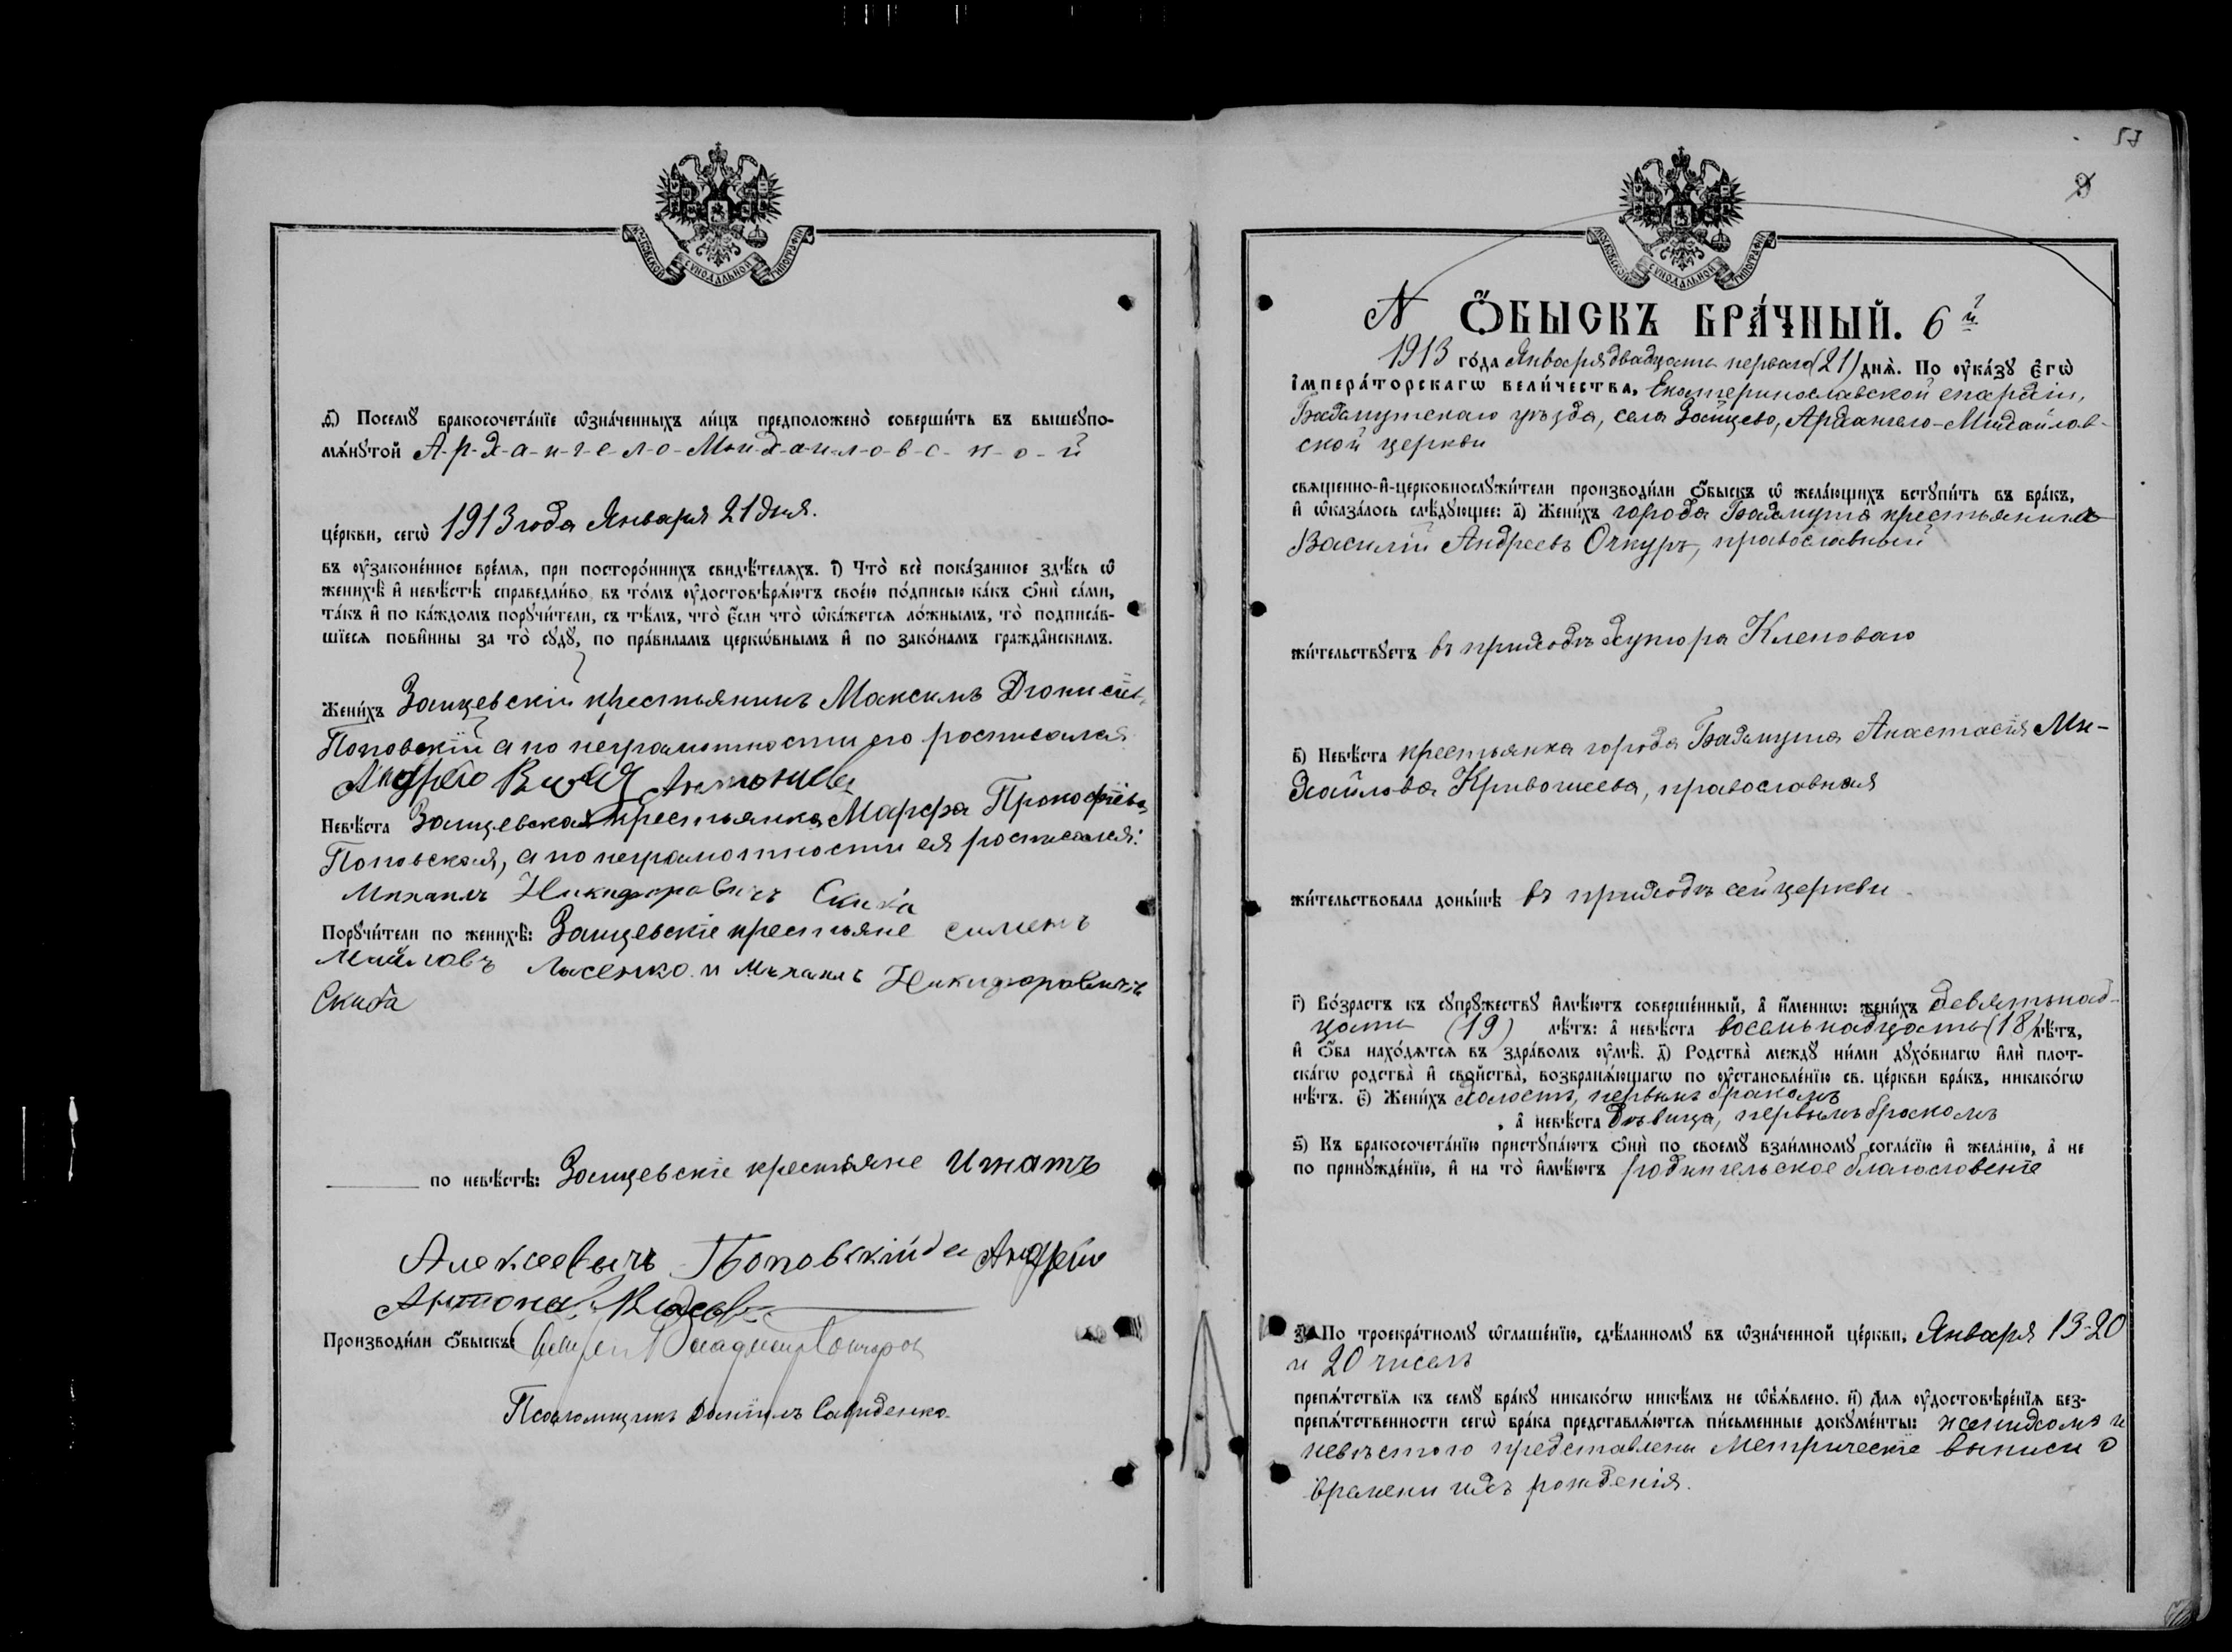 МОСКОВСКОЙ СѴНОДАЛЬНОЙ ТИПОГРАФІИ
ѳ҃) Посемꙋ̀ бракосочета́нїе ѡ҆зна́ченныхъ ли́цъ предположено̀ соверши́ть въ вышеꙋпо-
мѧ́нꙋтой А-р-х-а-н-г-е-л-о-Ми-х-а-и-л-о-в-с-к-о-й
це́ркви, сегѡ̀ 1913 года Января 21 дня.
въ ᲂу҆законе́нное вре́мѧ, при посторо́ннихъ свидѣ́телѧхъ. і҃) Что̀ всѐ пока́занное здѣ́сь ѡ҆
женихѣ̀ и҆ невѣ́стѣ справедли́во, въ то́мъ ᲂу҆достовѣрѧ́ютъ свое́ю по́дписью ка́къ ѻ҆нѝ са́ми,
та́къ и҆ по ка́ждомъ порꙋчи́тели, съ тѣ́мъ, что̀ є҆́сли что̀ ѡ҆ка́жетсѧ ло́жнымъ, то̀ подписа́в-
шїесѧ пови́нны за то̀ сꙋдꙋ̀, по пра́виламъ церко́внымъ и҆ по зако́намъ гражда́нскимъ.
Жени́хъ Зайцевскій крестьянинъ Максимъ Діонисіев
Поповскій а по неграмотности его росписался
Андрѣй Антоніев
Невѣ́ста Зайцевская крестьянка Марфа Прокофіева
Поповская, а по неграмотности ея росписался:
Михаилъ Никифоровичъ Скиба
Порꙋчи́тели по женихѣ̀: Зайцевскіе крестьяне Сименъ
Лысенко и Михаилъ Никифоровичъ
Скиба
по невѣ́стѣ: Зайцевскіе крестьяне Игнатъ
Алексеевичъ Поповскій да Андрей
Антонов
Производи́ли ѻ҆́быскъ: Владимір Гончаров
Псаломщикъ Даніилъ Савиденко
57
МОСКОВСКОЙ СѴНОДАЛЬНОЙ ТИПОГРАФІИ
N Ѻ҆́БЫСКЪ БРА́ЧНЫЙ. 6й
1913 го́да Января двадцать перваго (21) днѧ̀. По ᲂу҆ка́зꙋ Є҆гѡ̀
І҆мпера́торскагѡ вели́чества, Екатеринославской епархіи,
Бахмутскаго уѣзда, села Зайцево, Архангело-Михайлов-
ской церкви
свѧще́нно-и҆-церковнослꙋжи́тели производи́ли ѻ҆́быскъ ѡ҆ жела́ющихъ встꙋпи́ть въ бра́къ,
и҆ ѡ҆каза́лось слѣ́дꙋющее: а҃) Жени́хъ города Бахмута крестьянинъ
Василій Андреевъ Очкуръ, православный
жи́тельствꙋетъ въ приходѣ хутора Кленоваго
в҃) Невѣ́ста крестьянка города Бахмута Анастасія Ми-
хайлова Кривошеева, православная
жи́тельствовала доны́нѣ въ приходѣ сей церкви
г҃) Во́зрастъ къ сꙋпрꙋ́жествꙋ и҆мѣ́ютъ соверше́нный, а҆ и҆́меннѡ: жени́хъ девятьнад-
цать (19) лѣ́тъ: а҆ невѣ́ста восемьнадцать (18) лѣ́тъ,
и҆ ѻ҆́ба нахо́дѧтсѧ въ здра́вомъ ᲂу҆мѣ̀. д҃) Родства̀ междꙋ̀ ни́ми дꙋхо́внагѡ и҆лѝ плот-
ска́гѡ родства̀ и҆ сво́йства̀, возбранѧ́ющагѡ по ᲂу҆становле́нїю св. це́ркви бра́къ, никако́гѡ
нѣ́тъ. є҃) Жени́хъ холостъ, первымъ бракомъ
, а҆ невѣ́ста дѣвица, первымъ бракомъ
ѕ҃) Къ бракосочета́нїю пристꙋпа́ютъ ѻ҆нѝ по своемꙋ̀ взаи́мномꙋ согла́сїю и҆ жела́нїю, а҆ не
по принꙋжде́нїю, и҆ на то̀ и҆мѣ́ютъ родительское благословеніе
з҃) По троекра́тномꙋ ѡ҆глаше́нїю, сдѣ́ланномꙋ въ ѡ҆зна́ченной це́ркви, Января 13-20
и 20 чиселъ
препѧ́тствїѧ къ семꙋ̀ бра́кꙋ никако́гѡ никѣ́мъ не ѡ҆б̾ѧ́влено. и҃) Длѧ̀ ᲂу҆достовѣре́нїѧ без-
препѧ́тственности сегѡ̀ бра́ка представлѧ́ютсѧ пи́сьменные докꙋме́нты: женихомъ и
невѣстою представлены Метрическіе выписи о
времени ихъ рожденія.